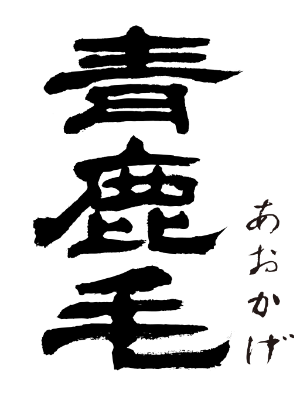 青鹿毛
あおかげ